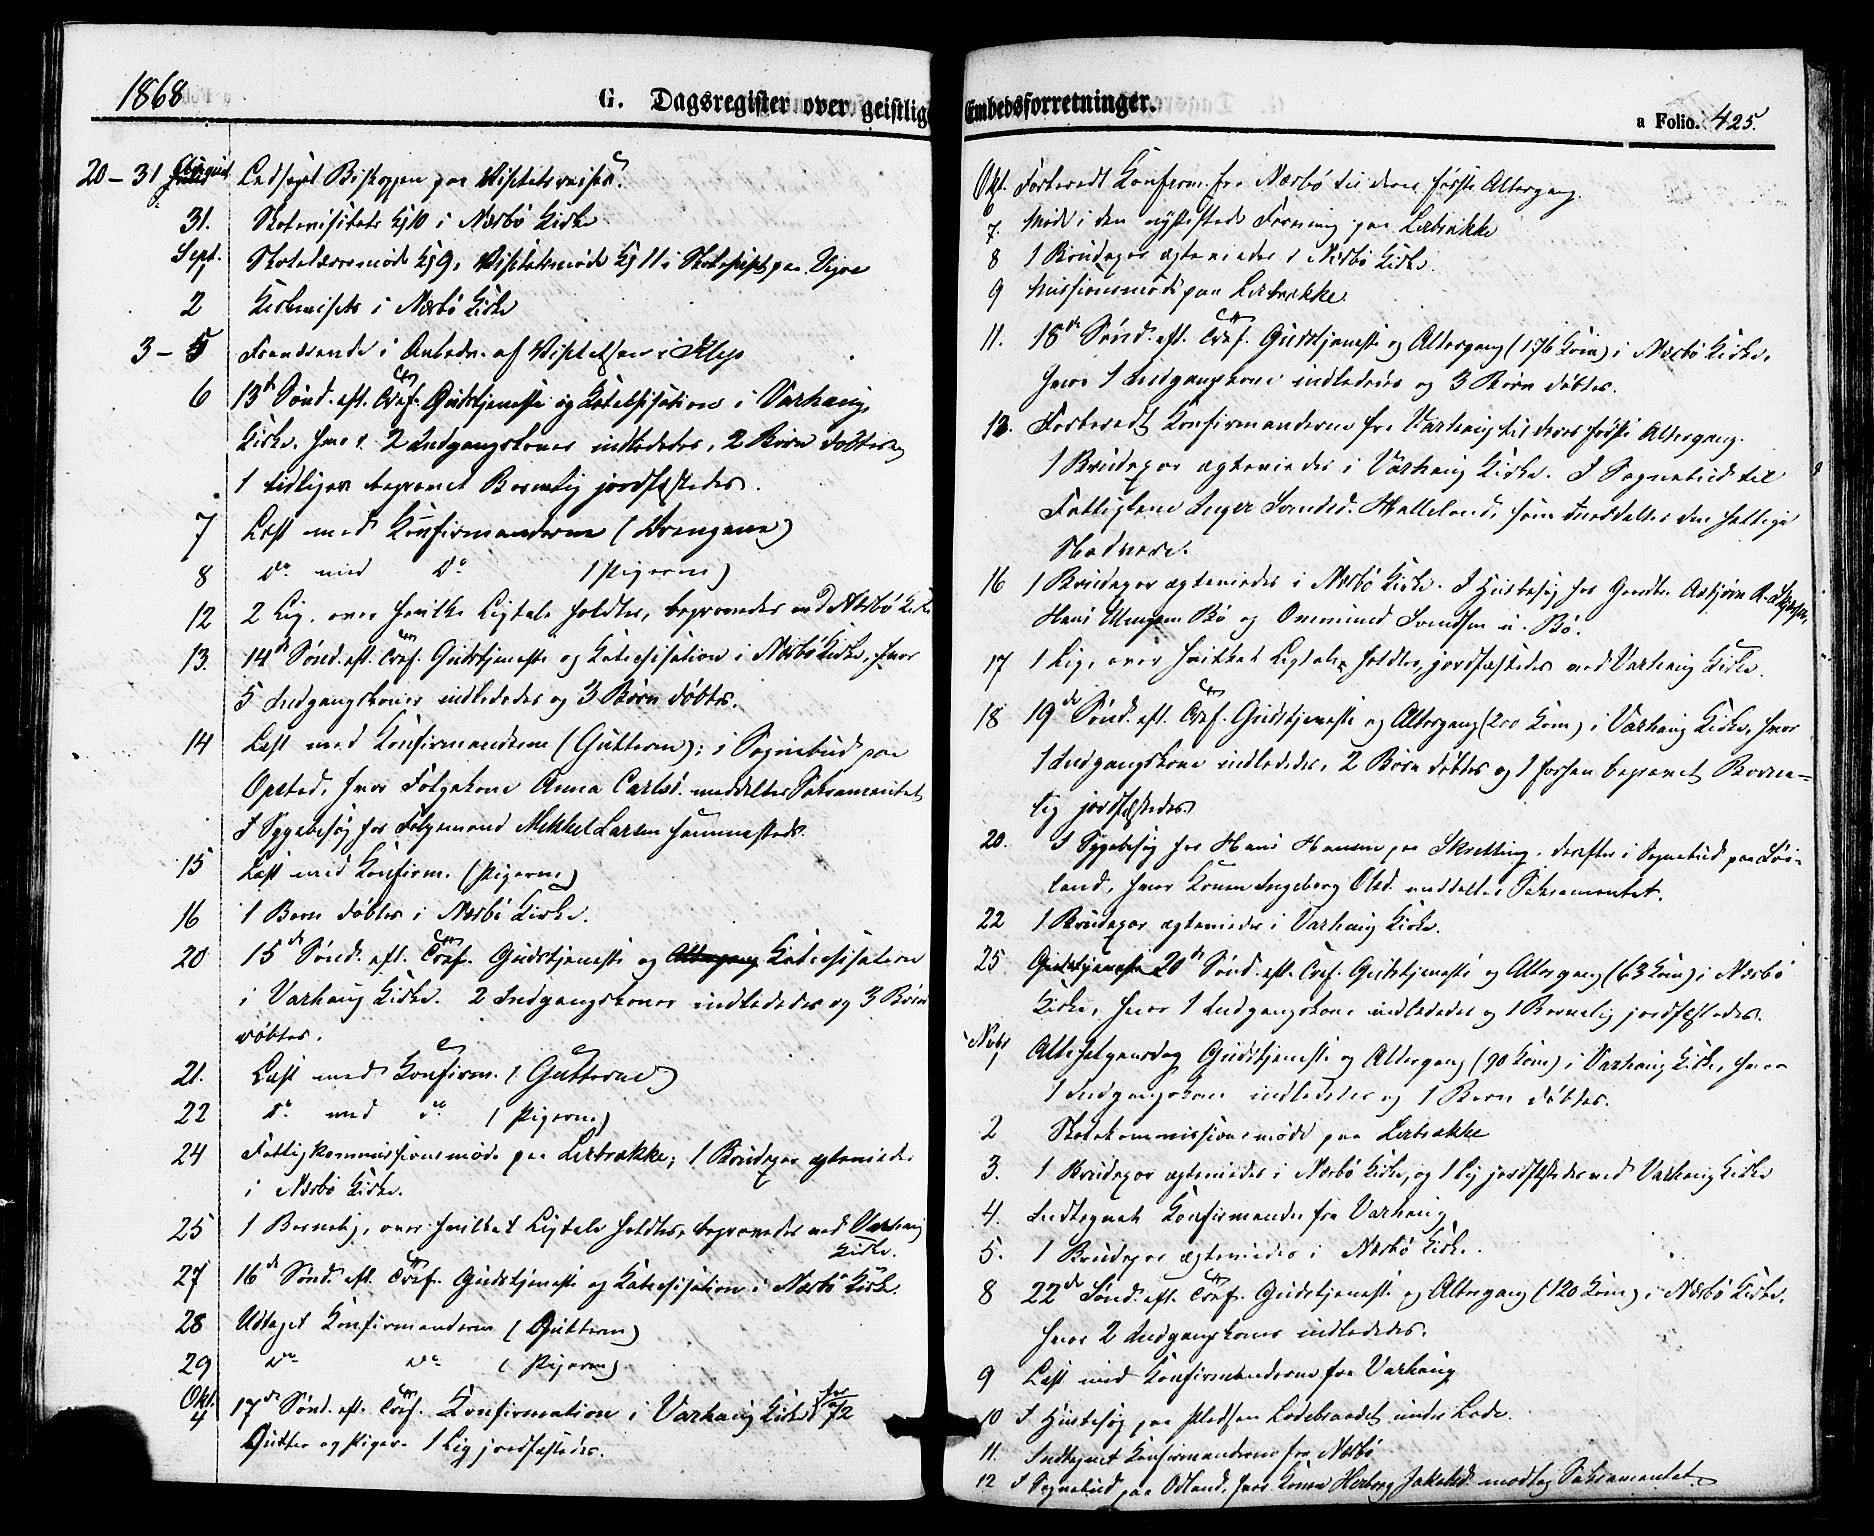 1868
G. Dagsregister over geistlige Embedsforretninger.
a Folio. 425.
20-31 August Ledsaget Biskoppen paa Visitatsreise.
31. Skolevisitats Kl 10 i Nærbö Kirke
Sept. 1 Skolelærermöde Kl 9, Visitatsmöde Kl 11 i paa
2 Kirkevisitats i Nærbö Kirke
3-5 Fraværende i Anledn. af Visitatsen i Klep
6 13de Sönd. eft. Tref. Gudstjeneste og Katechisation i Varhaug
Kirke, hvor 2 Indgangskoner indlededes, 2 Börn döbtes og
1 tidligere begravet Barnelig jordfæstedes.
7 Læst med Konfirmanderne (Drengene)
8 Do med Do (Pigerne)
12 2 Lig, over hvilke Ligtale holdtes, begravedes ved Nærbö Kirke
13. 14de Sönd. eft. Tref. Gudstjeneste og Katechisation i Nærbö Kirke, hvor
5 Indgangskoner indlededes og 3 Börn döbtes.
14 Læst med Konfirmanderne (Gutterne); i Sognebud paa
Opsted, hvor Fölgekone Anna Carlsd. meddeltes Sakramentet
I Sygebesög hos Fölgemand Mikkel Larsen sammesteds.
15 Læst med Konfirm. (Pigerne)
16 1 Barn döbtes i Nærbö Kirke.
20 15de Sönd. eft. Tref. Gudstjeneste og Altergang Katechisation
i Varhaug Kirke. 2 Indgangskoner indlededes og 3 Börn
döbtes.
21. Læst med Konfirm. (Gutterne)
22 Do med do (Pigerne)
24 Fattigkommissionsmöde paa Lerbrække; 1 Brudepar ægteviedes
i Nærbö Kirke.
25 1 Barnelig, over hvilket Ligtale holdtes, begravedes ved Varhaug
Kirke.
27 16de Sönd. eft. Tref. Gudstjeneste og Katechisation i Nærbö Kirke.
28 Udtaget Konfirmanderne (Gutterne)
29 Do Do (Pigerne)
Okt. 4 17de Sönd. eft. Tref. Konfirmation i Varhaug Kirke for 72
Gutter og Piger. 1 Lig jordfæstedes.
Okt. 6 Forberedt Konfirm. fra Nærbö til deres förste Altergang.
7. Möde i den Forening paa Lerbrække
8 1 Brudepar ægteviedes i Nærbö Kirke.
9 Missionsmöde paa Lerbrække.
11. 18de Sönd. eft. Tref. Gudstjeneste og Altergang (176 Kom) i Nærbö Kirke,
hvor 1 Indgangskone indlededes og 3 Börn döbtes.
13. Forberedt Konfirmanderne fra Varhaug til deres förste Altergang.
1 Brudepar ægteviedes i Varhaug Kirke. I Sognebud til
Inger Halleland, som meddeltes den hellige
Nadvere.
16 1 Brudepar ægteviedes i Nærbö Kirke. I Husbesög hos Gaardbr. Asbjörn
Hans Bö og Ommund Svendsen Bö.
17 1 Lig, over hvilket Ligtale holdtes, jordfæstedes ved Varhaug Kirke.
18 19de Sönd. eft. Tref. Gudstjeneste og Altergang (200 Kom) i Varhaug Kirke, hvor
1 Indgangskone indlededes, 2 Börn döbtes og 1 forhen begravet Barne-
lig jordfæstedes.
20. I Sygebesög hos Hans Hansen paa Skretting, derefter i Sognebud paa
land, hvor Konen Ingeborg Olsd. meddeltes Sakramentet.
22 1 Brudepar ægteviedes i Varhaug Kirke.
25 Gudstjeneste 20de Sönd. eft. Tref. Gudstjeneste og Altergang (63 Kom) i Nærbö
Kirke, hvor 1 Indgangskone indlededes og 1 Barnelig jordfæstedes.
Novbr 1 Allehelgensdag Gudstjeneste og Altergang (90 Kom) i Varhaug Kirke, hvor
1 Indgangskone indlededes og 1 Barn döbtes.
2 Skolekommissionsmöde paa Lerbrække
3. 1 Brudepar ægteviedes i Nærbö Kirke, og 1 Lig jordfæstedes ved Varhaug Kirke
4. Indtegnet Konfirmander fra Varhaug
5. 1 Brudepar ægteviedes i Nærbö Kirke.
8 22de Sönd. eft. Tref. Gudstjeneste og Altergang (120 Kom) i Nærbö Kirke,
hvor 2 Indgangskoner indlededes.
9 Læst med Konfirmanderne fra Varhaug
10 I Husbesög paa Pladsen under Lode.
11. Indtegnet Konfirmanderne fra Nærbö
12 I Sognebud paa Odland, hvor Konen Herborg Jakobsd. modtog Sakramentet.